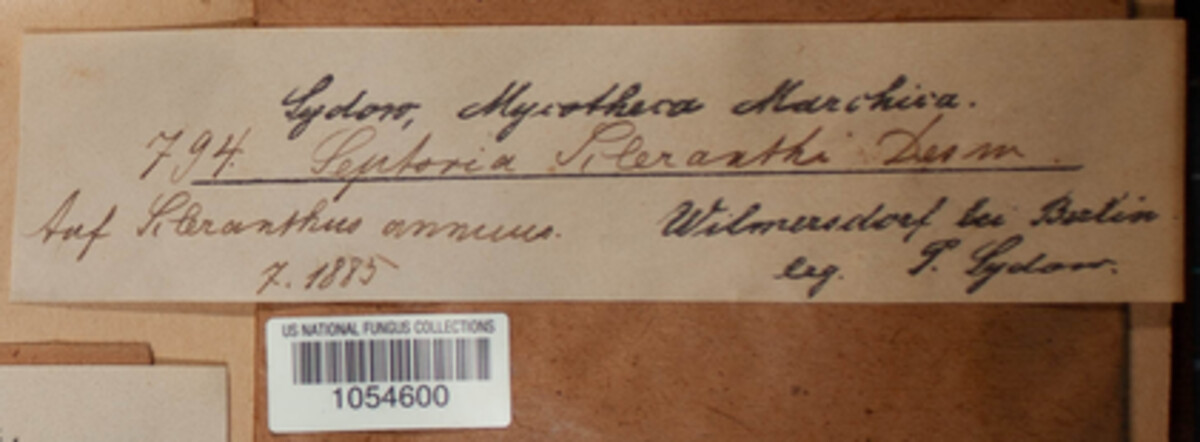 Sydow, Mycotheca Marchica.
794. Septoria Scleranthi Desm.
Auf Scleranthus annuus.
Wilmersdorf bei Berlin
7. 1885
leg. P. Sydow.
US NATIONAL FUNGUS COLLECTIONS
1054600